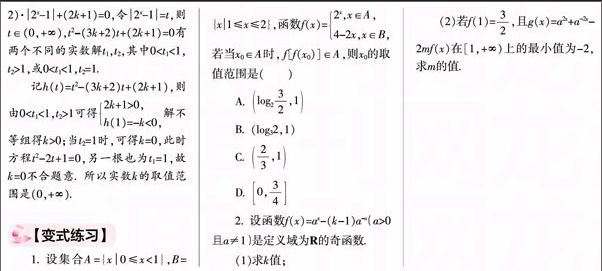 2)·|2ˣ-1|+(2k+1)=0,令|2ˣ-1|=t,则
t∈(0,+∞),t²-(3k+2)t+(2k+1)=0有
两个不同的实数解t₁,t₂,其中0<t₁<1,
t₂>1,或0<t₁<1,t₂=1.
记h(t)=t²-(3k+2)t+(2k+1),则
由0<t₁<1,t₂>1可得{2k+1>0, h(1)=-k<0, 解不
等组得k>0;当t₂=1时,可得k=0,此时
方程t²-2t+1=0,另一根也为t₁=1,故
k=0不合题意. 所以实数k的取值范
围是(0,+∞).
【变式练习】
1. 设集合A={x|0≤x<1},B=
{x|1≤x≤2},函数f(x)={2ˣ,x∈A, 4-2x,x∈B,
若当x₀∈A时,f[f(x₀)]∈A,则x₀的取
值范围是( )
A. (log₂3/2,1)
B. (log₃2,1)
C. (2/3,1)
D. [0,3/4]
2. 设函数f(x)=aˣ-(k-1)a⁻ˣ(a>0
且a≠1)是定义域为R的奇函数.
(1)求k值;
(2)若f(1)=3/2,且g(x)=a²ˣ+a⁻²ˣ-
2mf(x)在[1,+∞)上的最小值为-2,
求m的值.